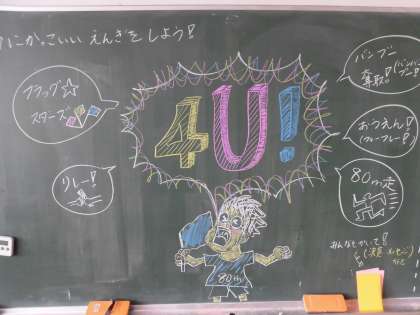 かっこいい えんぎをしよう!
フラッグ☆
スターズ
4U!!
バンブー
奪取!
(バンバンブー)
おうえん!
(フレーフレー!)
リレー!
80m走
みんなもかいて!
80m